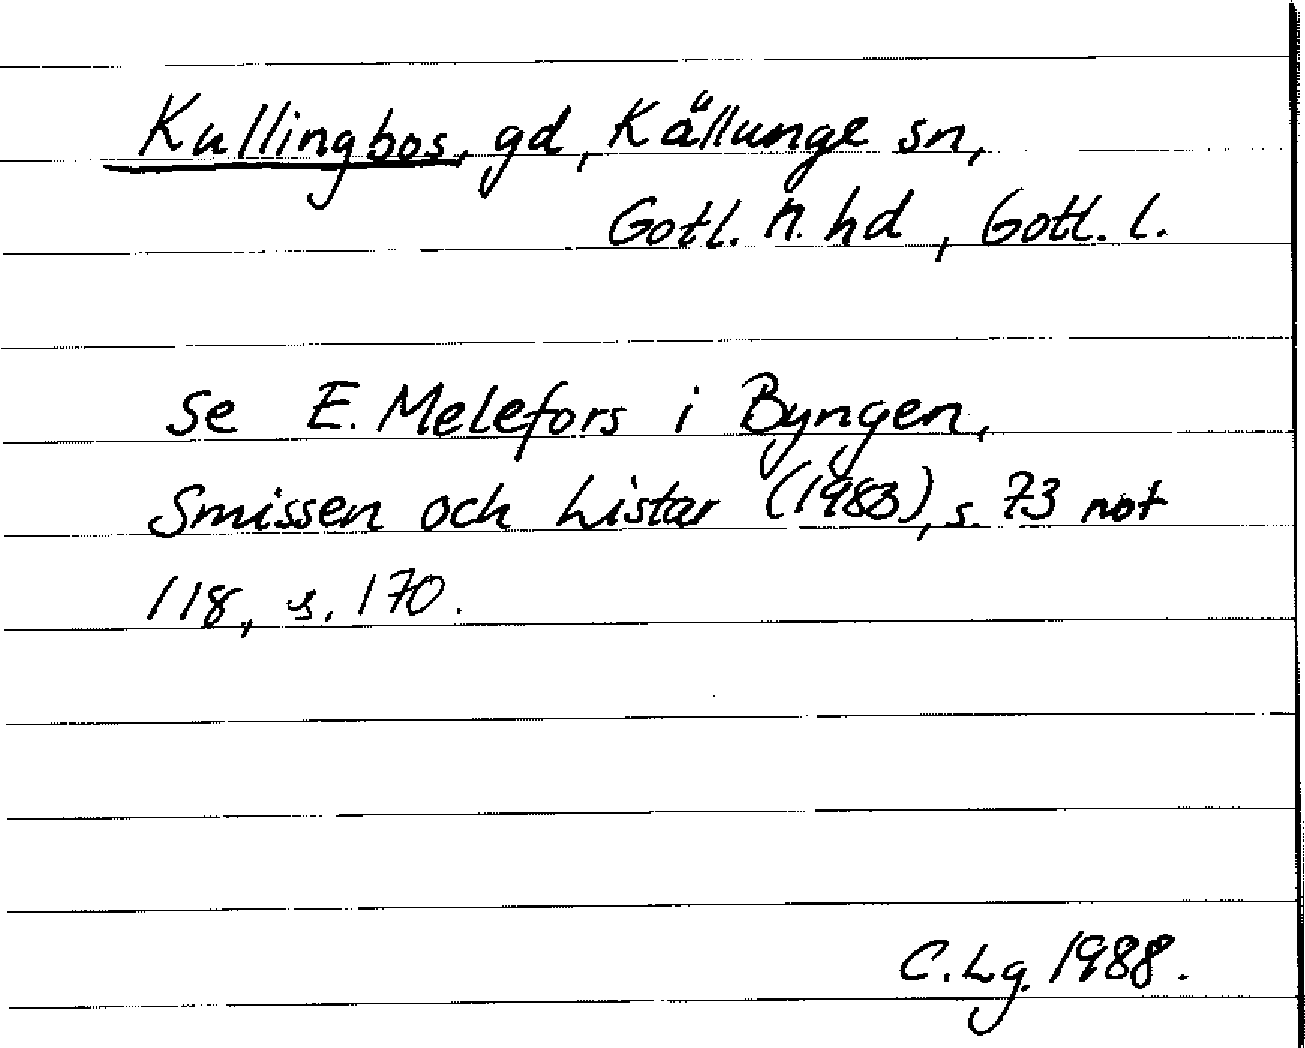 Kullingbos, gd, Källunge sn,
Gotl. n. hd, Gotl. l.
Se E. Melefors i Byngen,
Smissen och Listar (1983), s. 73 not
118, s. 170.
C. Lg. 1988.